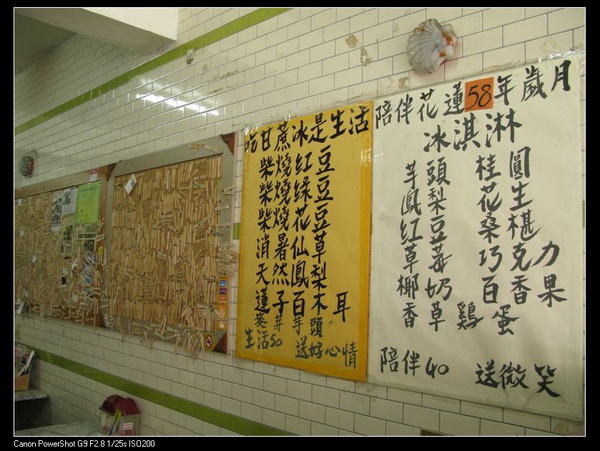 吃甘蔗冰是生活
柴燒紅豆
柴燒绿豆
柴燒花豆
消暑仙草
天然鳳梨
蓮子百木耳
芋頭
生活50 送好心情
陪伴花蓮58年歲月
冰淇淋
芋頭 桂圓
鳳梨 花生
红豆 桑椹
草莓 巧克力
椰奶 百香果
香草 雞蛋
陪伴40 送微笑
Canon PowerShot G9 F2.8 1/25s ISO200